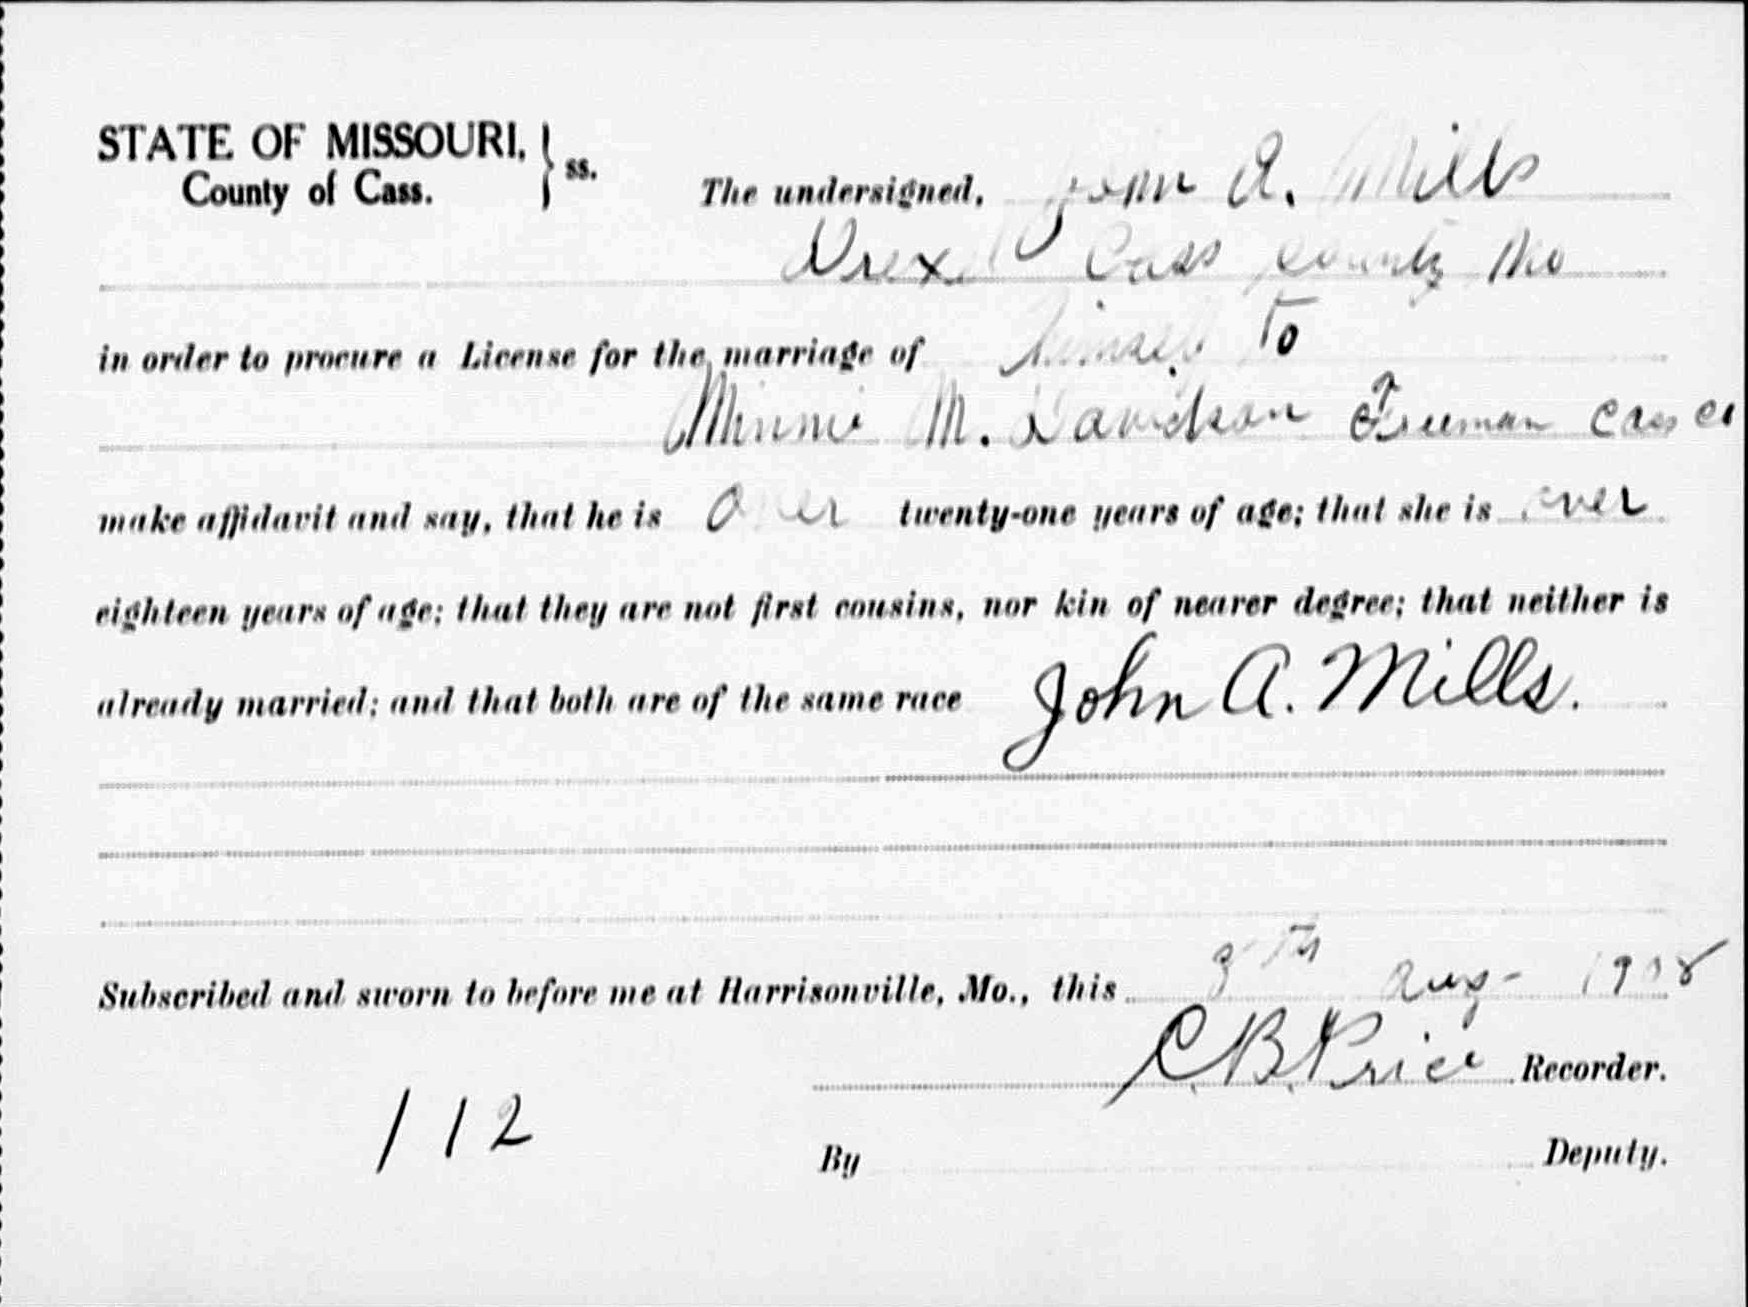 STATE OF MISSOURI, } ss.
County of Cass.
The undersigned, John A. Mills
Drexel Cass County Mo
in order to procure a License for the marriage of himself to
Minnie M. Davidson Freeman Cass Co
make affidavit and say, that he is over twenty-one years of age; that she is over
eighteen years of age; that they are not first cousins, nor kin of nearer degree; that neither is
already married; and that both are of the same race John A. Mills.
Subscribed and sworn to before me at Harrisonville, Mo., this 8th Aug- 1908
C. B. Price Recorder.
112
By Deputy.